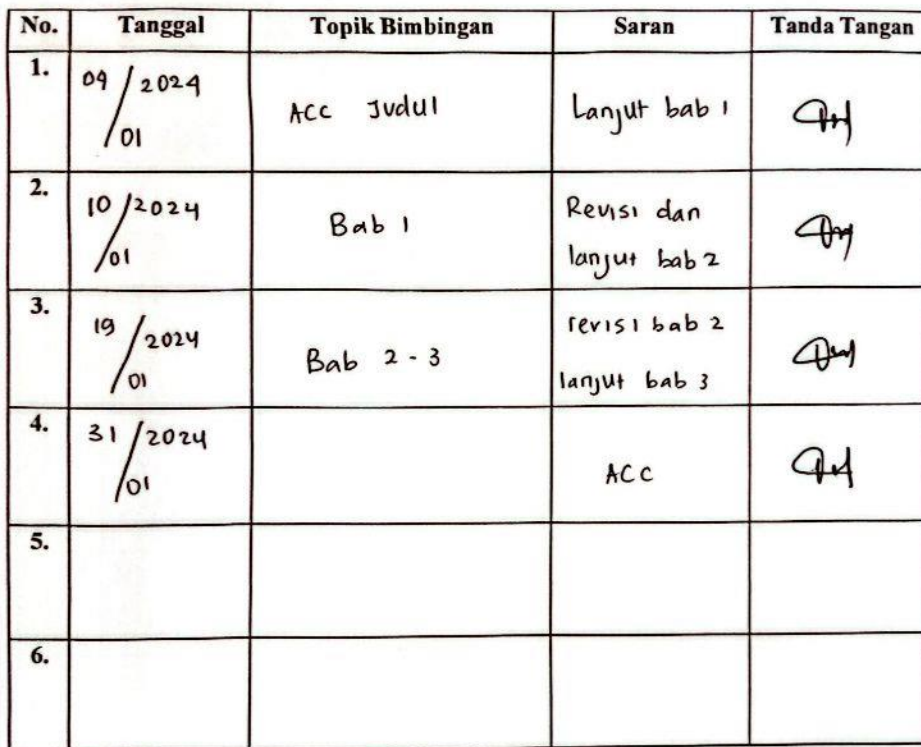 No. Tanggal Topik Bimbingan Saran Tanda Tangan
1. 09/01 2024 ACC Judul Lanjut bab 1
2. 10/01 2024 Bab 1 Revisi dan
lanjut bab 2
3. 19/01 2024 Bab 2-3 revisi bab 2
lanjut bab 3
4. 31/01 2024 ACC
5.
6.